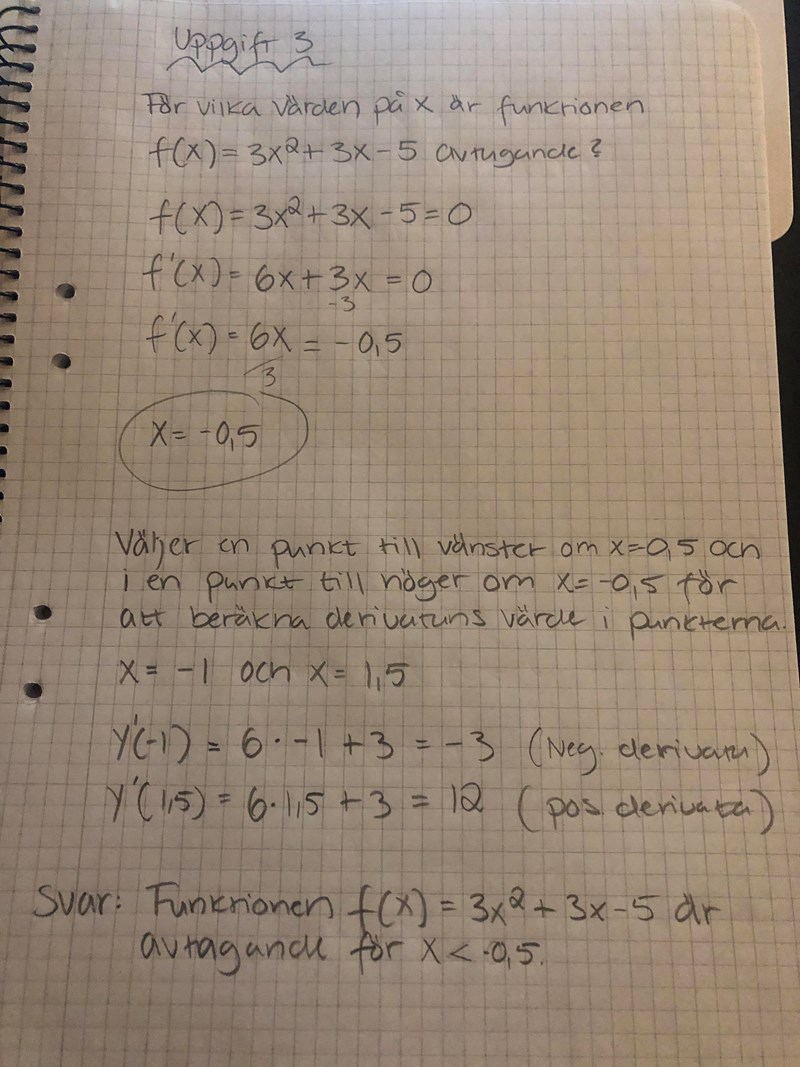 Uppgift 3
För vilka värden på x är funktionen
f(x) = 3x² + 3x - 5 avtagande?
f(x) = 3x² + 3x - 5 = 0
f'(x) = 6x + 3x = 0
-3
f'(x) = 6x = -0,5
3
x = -0,5
Väljer en punkt till vänster om x=-0,5 och
i en punkt till höger om x= -0,5 för
att beräkna derivatans värde i punkterna.
x = -1 och x = 1,5
y'(-1) = 6 · -1 + 3 = -3 (Neg. derivata)
y'(1,5) = 6·1,5 + 3 = 12 (pos. derivata)
Svar: Funktionen f(x) = 3x² + 3x - 5 är
avtagande för x < -0,5.